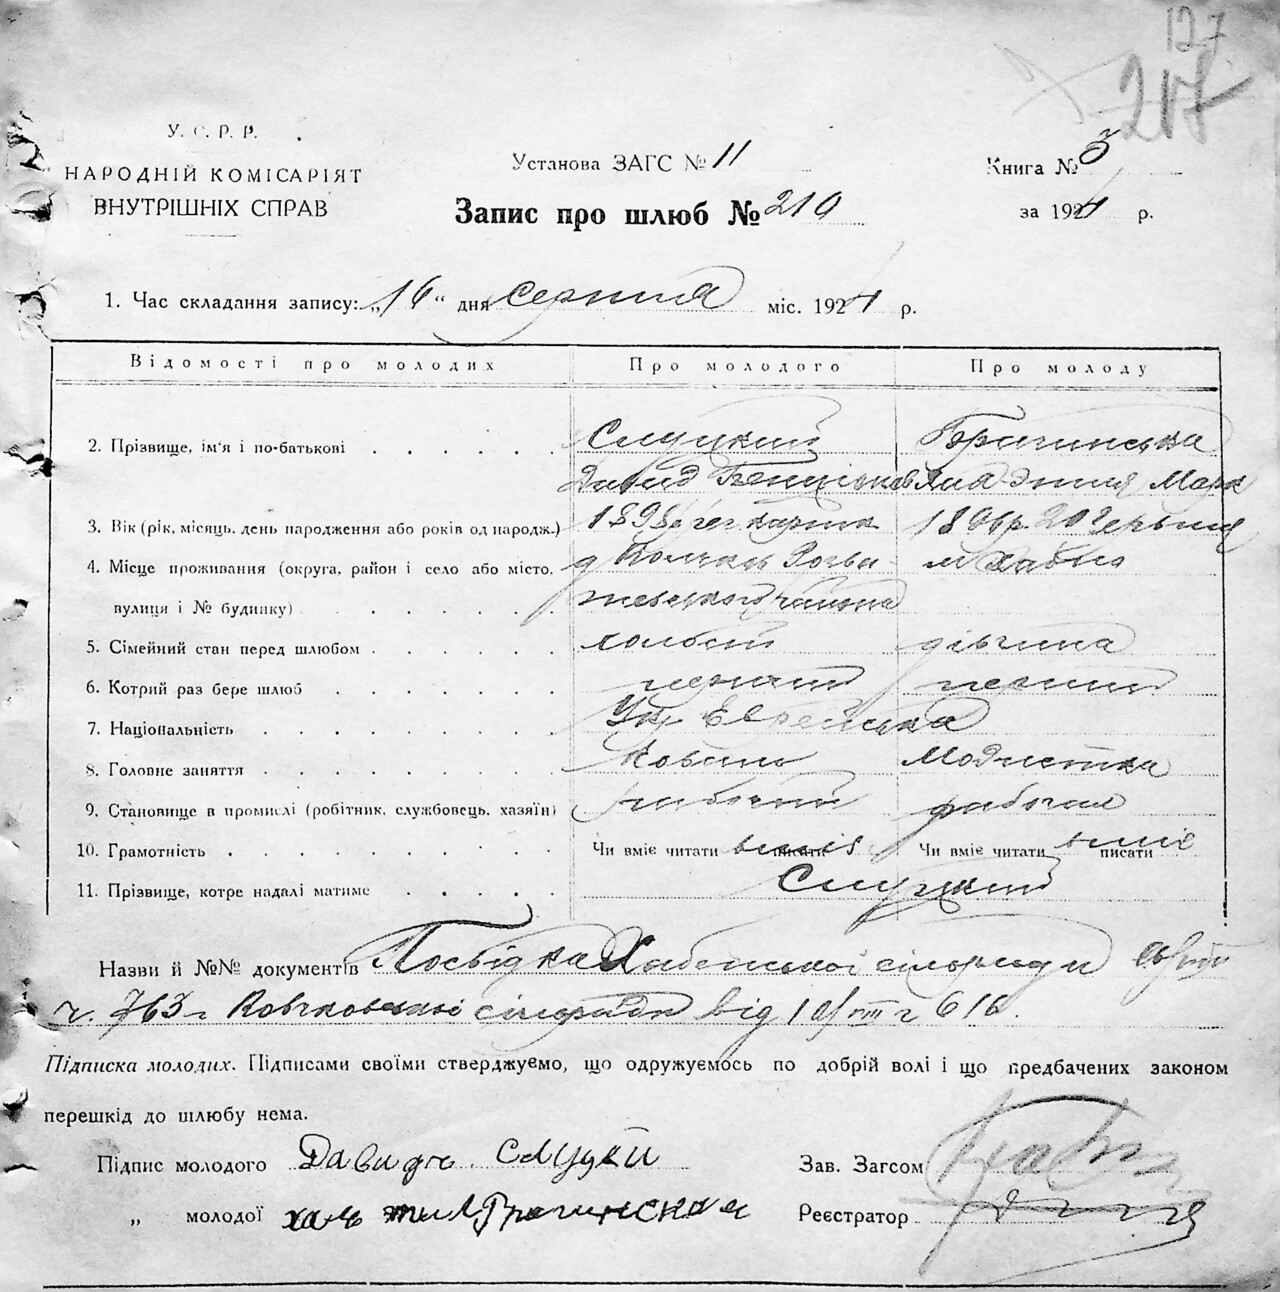 127
217
У. С. Р. Р.
НАРОДНІЙ КОМІСАРІЯТ
ВНУТРІШНІХ СПРАВ
Установа ЗАГС № 11
Книга № 3
Запис про шлюб № 210
за 1924 р.
1. Час складання запису: „16“ дня серпня міс. 1924 р.
Відомості про молодих Про молодого Про молоду
2. Прізвище, ім'я і по-батькові Слуцкий Брагинська
Давид Марк
3. Вік (рік, місяць, день народження або років од народж.) 1898 20 Червня
4. Місце проживання (округа, район і село або місто, м Хабно
вулиця і № будинку) району
5. Сімейний стан перед шлюбом холост дівчина
6. Котрий раз бере шлюб первий первий
7. Національність Єврейська
8. Головне заняття Коваль Модистка
9. Становище в промислі (робітник, службовець, хазяїн) рабочий рабочая
10. Грамотність Чи вміє читати вміє писати Чи вміє читати вміє писати
11. Прізвище, котре надалі матиме Слуцкий
Назви й №№ документів Посвідка Хабенської сільради
ч. 763 сільради від 616.
Підписка молодих. Підписами своїми стверджуємо, що одружуємось по добрій волі і що предбачених законом
перешкід до шлюбу нема.
Підпис молодого Давидъ Слуцкй Зав. Загсом
„ молодої Реєстратор